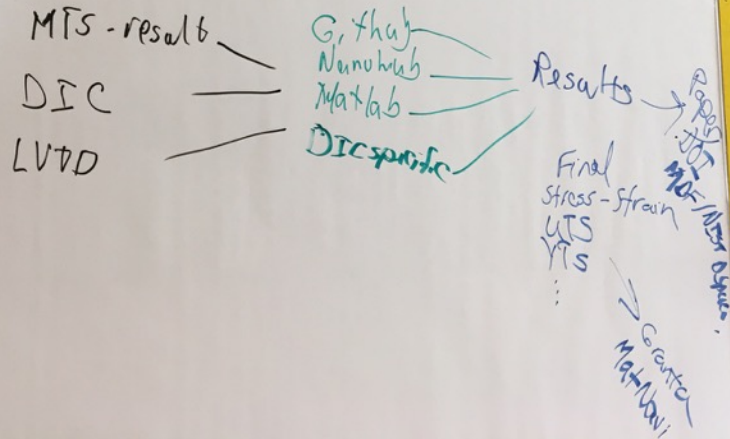 MTS-result
DIC
LVDD
Github
Nanohub
Matlab
DIC specific
Results
Paper/
DOI
MDF/NIST DSpace.
Final
Stress-Strain
UTS
YTS
...
Granta
MatNavi